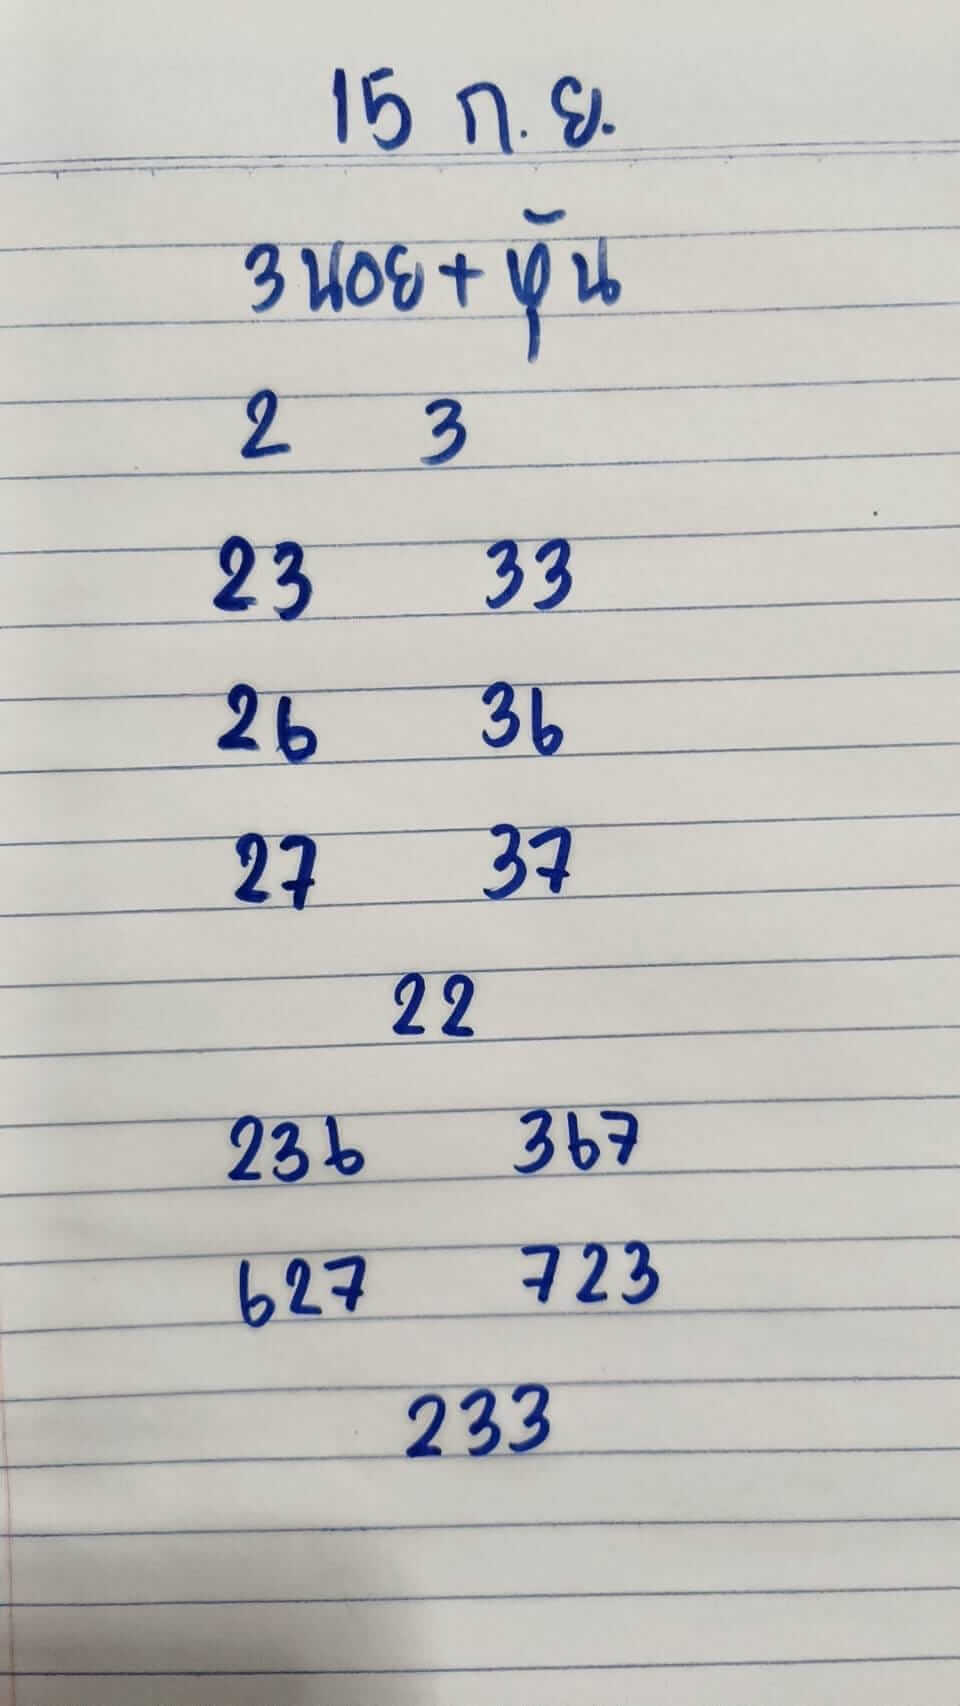 15 ก.ย.
3นอย+หุ้น
2 3
23 33
26 36
27 37
22
236 367
627 723
233